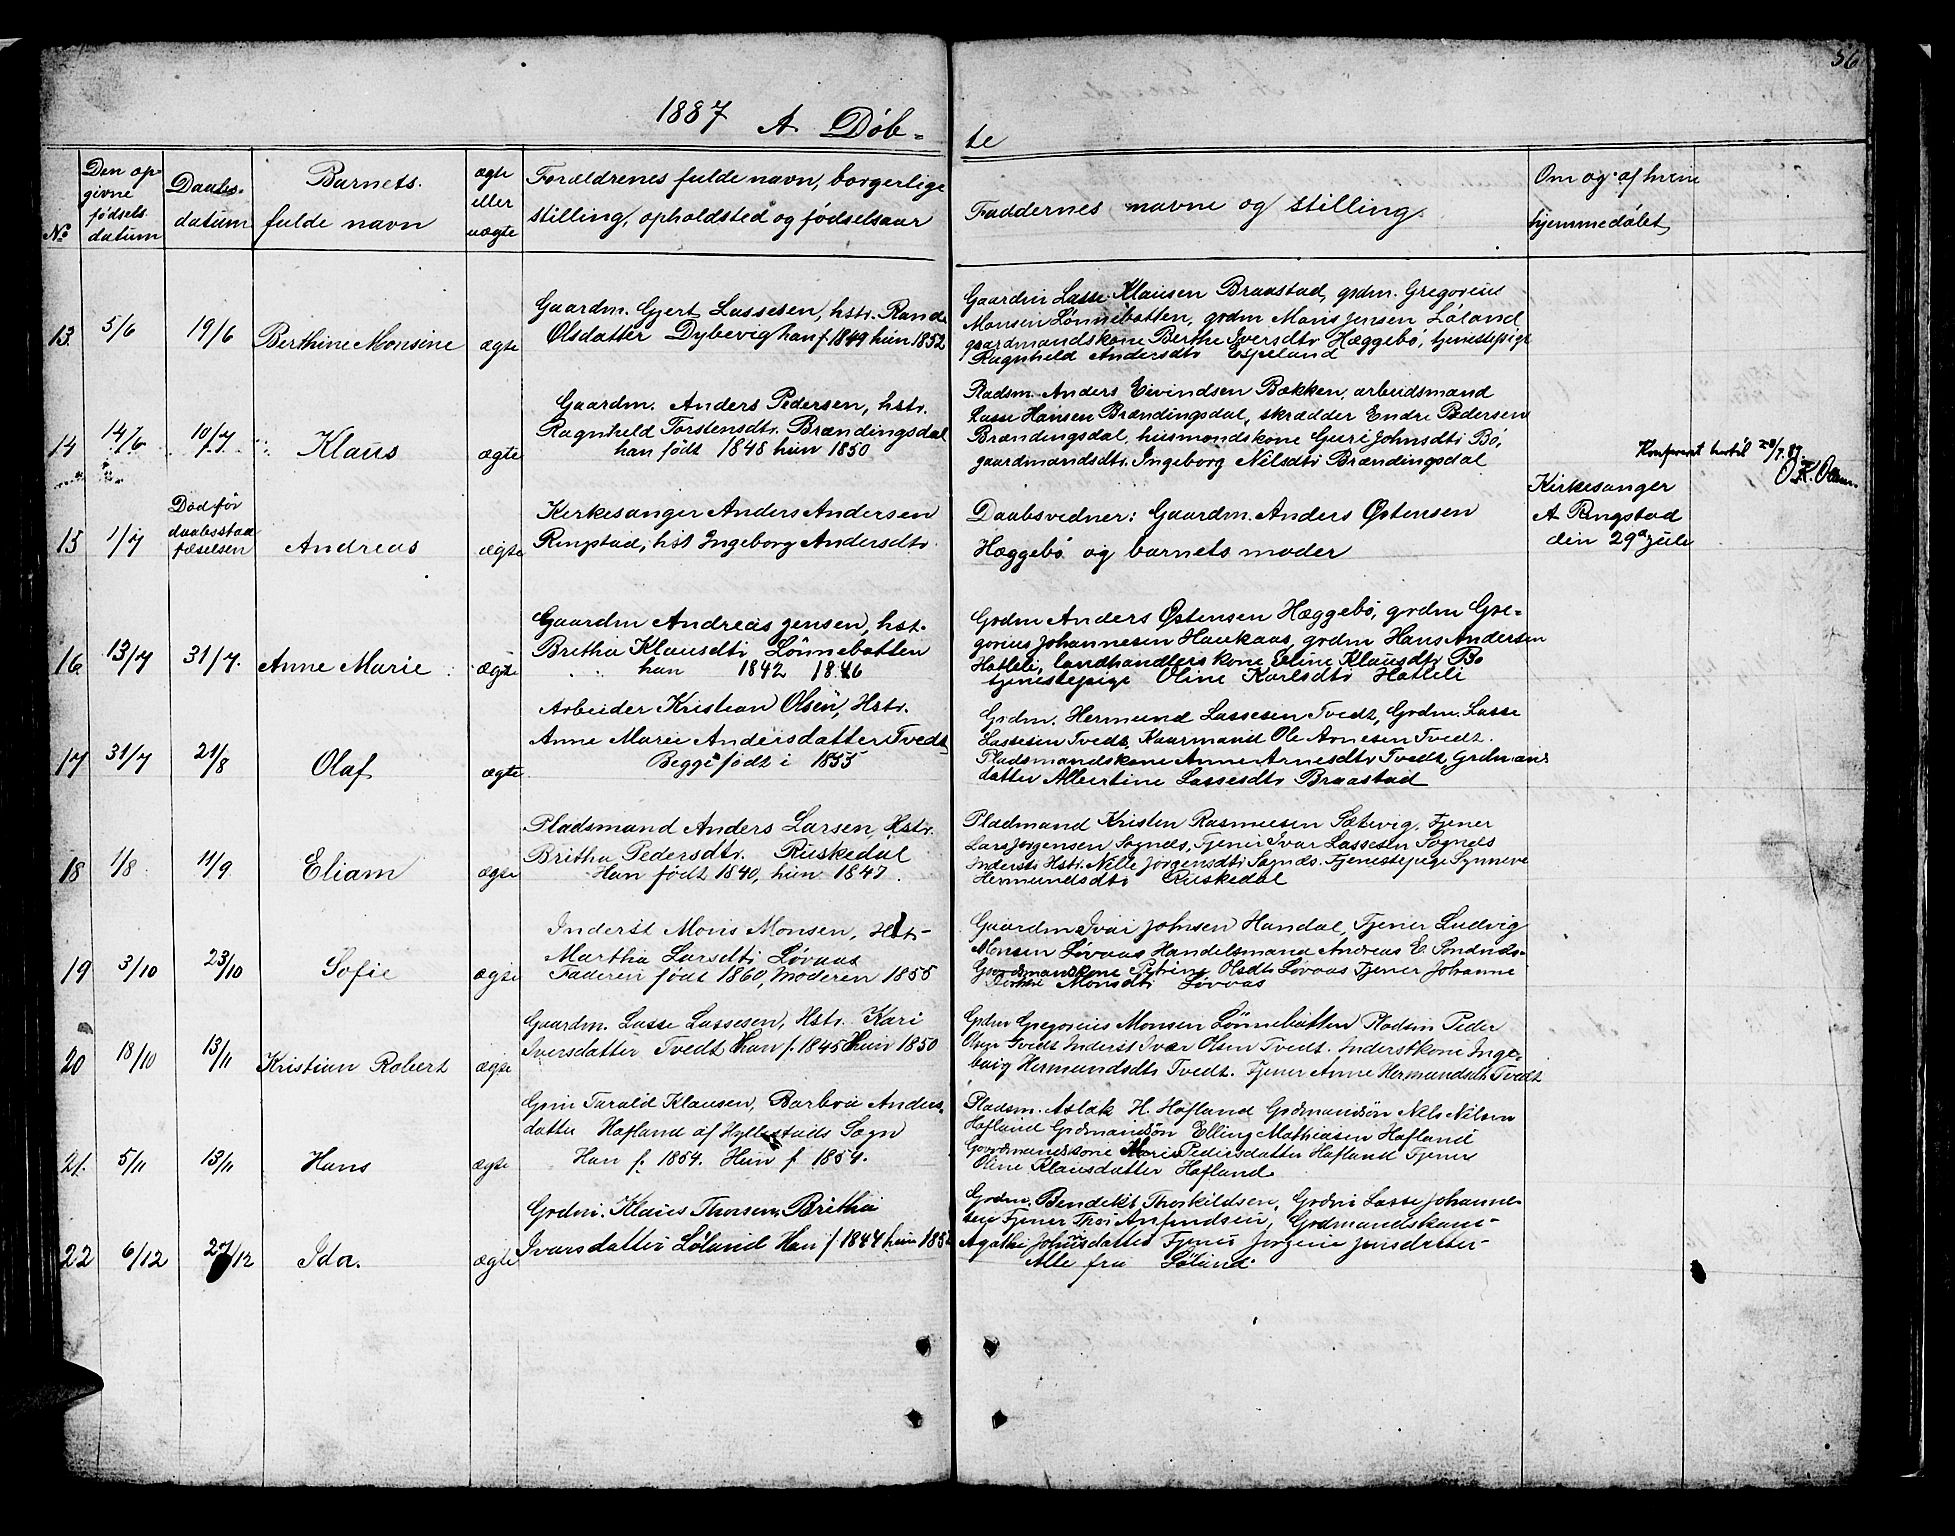 56
1887 A. Døb-
te
No
Den op-
givne
fødsels
datum
Daabs-
datum
Barnets
fulde navn
ægte
eller
uægte
Forældrenes fulde navn, borgerlige
stilling, opholdsted og fødselsaar
Faddernes navne og stilling.
Om og af hvem
hjemmedøbt
13. 5/6 19/6 Berthine Monsine ægte
Gaardm. Gjert Lassesen, hstr. Rande
Olsdatter Dybevig han f. 1849 hun 1852
Gaardm Lasse Klausen Braastad, grdm. Gregorius
Monsen Lønnebotten, grdm Mons Jensen Løland
gaardmandskone Berthe Iversdtr Hæggebø, tjenestepige
Ragnheld Andersdtr Espeland
14 14/6 10/7 Klaus ægte
Gaardm. Anders Pedersen, hstr.
Ragnheld Torstensdtr. Brændingsdal
han født 1848 hun 1850
Pladsm. Anders Eivindsen Bækken, arbeidsmand
Lasse Hansen Brændingsdal, skrædder Endre Pedersen
Brændingsdal, husmandskone Guri Johnsdtr Bø,
gaardmandsdtr. Ingeborg Nilsdtr Brændingsdal
Konfereret hertil 28/7.87.
15 1/7 Død før
daabsstad
fæselsen Andreas ægte
Kirkesanger Anders Andersen
Ringstad, hst Ingeborg Andersdtr.
Daabsvedner: Gaardm. Anders Østensen
Hæggebø og barnets moder
Kirkesanger
A Ringstad
den 29de Juli
16 13/7 31/7. Anne Marie ægte
Gaardm Andreas Jensen, hst.
Britha Klausdtr Lønnebotten
han 1842 1846
Grdm Anders Østensen Hæggebø, grdm Gre-
gorius Johannesen Haukaas, grdm Hans Andersen
Hatleli, landhandlers kone Eline Klausdtr Bø
tjenestepige Oline Karlsdtr Hatleli
17 31/7 21/8 Olaf ægte
Arbeider Kristian Olsen, Hstr.
Anne Marie Andersdatter Tvedt
Begge født i 1855
Grdm. Hermund Lassesen Tvedt, Grdm. Lasse
Lassesen Tvedt, Kaarmand Ole Arnesen Tvedt.
Pladsmandskone Anne Arnesdtr Tvedt, Grdmans
datter Albertine Lassesdtr Braastad
18 1/8 11/9 Eliam ægte
Pladsmand Anders Larsen, Hstr.
Britha Pedersdtr. Ruskedal
Han født 1840, hun 1847.
Pladmand Kristen Rasmussen Sætevig, Tjener
Lars Jørgensen Sognds, Tjener Ivar Lassesen Sognds
Inderst Hstr. Nille Jørgensdtr Sognds. Tjenestepige Synneve
Hermundsdtr Ruskedal
19 3/10 23/10 Sofie ægte
Inderst Mons Monsen, Hstr-
Martha Larsdtr Løvaas
Faderen født 1860, Moderen 1855
Gaardm Ivar Johnsen Handal, Tjener Ludvig
Monsen Løvaas Handelsmand Andreas E.
Gaardmanskone Petrine Olsdtr Løvaas Tjener Johanne
Dorthe Monsdtr Løvaas
20 18/10 13/11 Kristian Robert ægte
Gaardm. Lasse Lassesen, Hstr. Kari
Iversdatter Tvedt Han f. 1845 Hun 1850
Grdm Gregorius Monsen Lønnebotten Pladsm Peder
Olsen Tvedt Inderst Ivar Olsen Tvedt. Inderstkone Inge-
borg Hermundsdtr Tvedt. Tjener Anne Hermundsdtr Tvedt
21. 5/11 13/11 Hans ægte
Gdm Tarald Klausen, Barbra Anders-
datter Hafland af Hyllestads Sogn
Han f. 1854. Hun f 1854.
Pladsm. Aslak H. Hafland Grdmandsøn Nils Nilsen
Hafland Grdmandsøn Elling Mathiasen Hafland
Gaardmandskone Marie Pedersdatter Hafland Tjener
Oline Klausdatter Hafland
22 6/12 27/12 Ida. ægte
Grdm. Klaus Thorsen, Britha
Ivarsdatter Løland Han f 1844 hun
Grdm. Bendikt Thorkildsen, Grdm Lasse Johanne-
sen Tjener Thor Anfindsen, Grdmandskone-
Agathe Johnsdatter Tjener Jørgine Jensdatter-
Alle fra Løland.